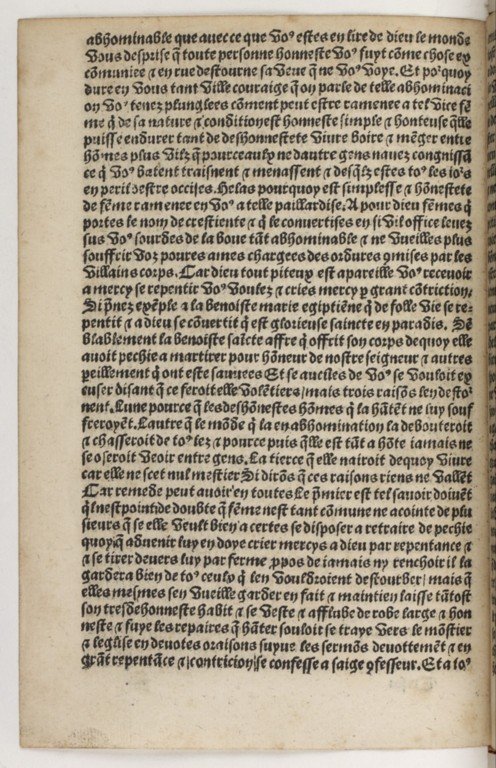 abhominable que auecce que Voꝰ estes en lire de dieu le monde
Vous desprise q̃ toute personne honneste Voꝰ fuyt cõme chose ex
cõmuniee ⁊ en rue destourne sa Veue q̃ ne Voꝰ Voye. Et poꝛquoy
dure en Vous tant Ville couraige q̃ on parle de telle abhominaci
on Voꝰ tenez plunglees cõment peut estre ramenee a tel Vice fẽ
me q̃ de sa nature ⁊ condition est honneste simple ⁊ honteuse q̃lle
puisse endurer tant de deshonnestete Viure boire ⁊ mẽger entre
hõmes plus Vilz q̃ pourceaulx ne dautre gens nauez congnissã
ce q̃ Voꝰ batent traisnent ⁊ menassent ⁊ desq̃lz estes toꝰ les ioꝛs
en peril destre occises. Helas pourquoy est simplesse ⁊ hõnestete
de fẽme ramenee en Voꝰ a telle paillardise. A pour dieu fẽmes q̃
portes le nom de crestiente ⁊ q̃ le conuertises en si Vil office leuez
sus Voꝰ sourdes de la boue tãt abhominable ⁊ ne Vueilles plus
souffrir Voz poures ames chargees des ordures ꝯmises par les
Villains corps. Car dieu tout piteux est apareille Voꝰ receuoir
a mercy se repentir Voꝰ Voulez ⁊ cries mercy p̱ grant cõtriction.
Si p̃nez exẽple a la benoiste marie egiptiẽne q̃ de folle Vie se re⸗
pentit ⁊ a dieu se cõuertit q̃ est glorieuse saincte en paradis. Sẽ
blablement la benoiste saĩcte affre q̃ offrit son corps dequoy elle
auoit pechie a martirer pour hõneur de nostre seigneur ⁊ autres
peillement q̃ ont este sauuees Et se aucũes de Voꝰ se Vouloit ex
cuser disant q̃ ce feroit elle Volẽtiers/mais trois raisõs len desto
nent. Lune pource q̃ les deshõnestes hõmes q̃ la hãtẽt ne luy souf
freroyẽt. Lautre q̃ le mõde q̃ la en abhomination la debouteroit
⁊ chasseroit de toꝰ lez ⁊ pource puis q̃lle est tãt a hõte iamais ne
se oseroit Veoir entre gens. La tierce q̃ elle nairoit dequoy Viure
car elle ne scet nul mestier Si dirõs q̃ ces raisons riens ne Vallẽt
Car remede peut auoir en toutes Le p̃mier est tel sauoir doiuẽt
q̃l nest point de doubte q̃ fẽme nest tant cõmune ne acointe de plu
sieurs q̃ se elle Veult bien a certes se disposer a retraire de pechie
quoy q̃ aduenir luy en doye crier mercys a dieu par repentance ⁊
⁊ se tirer deuers luy par ferme ꝓpos de iamais ny renchoir il la
gardera bien de toꝰ ceulx q̃ len Vouldroient destourber/ mais q̃
elles mesmes sen Vueille garder en fait ⁊ maintien laisse tãtost
son tresdehonneste habit ⁊ se Veste ⁊ affluble de robe large ⁊ hon
neste ⁊ fuye les repaires q̃ hãter souloit se traye Vers le mõstier
⁊ leglise en deuotes oraisons suyue les sermõs deuottemẽt ⁊ en
grãt repentãce ⁊ contricion se confesse a saige ꝯfesseur. Et a toꝰ